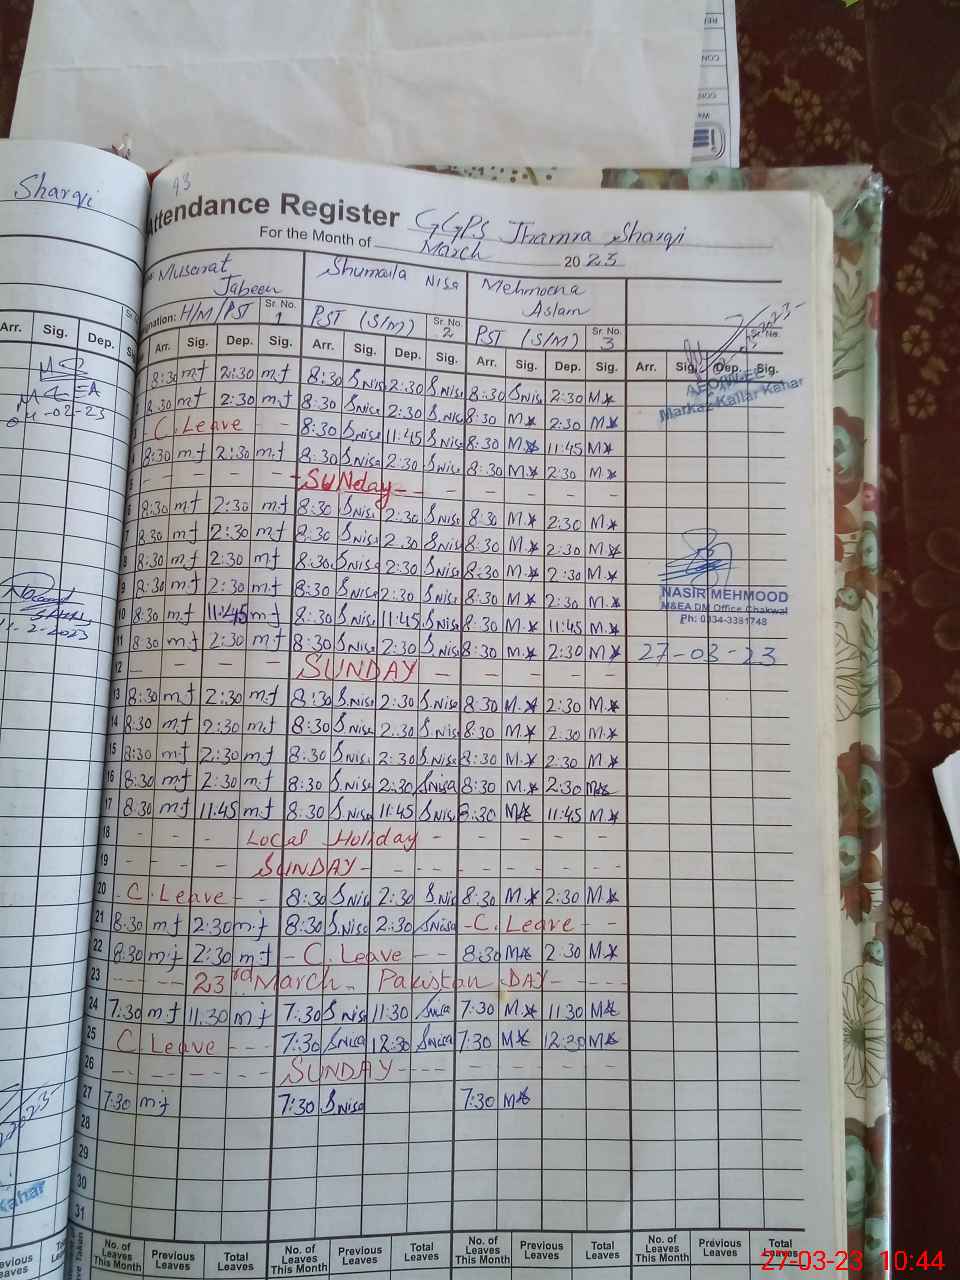 Sharqi
93
Attendance Register GGPS Jhamra Sharqi
For the Month of March 2023
Musarat Jabeen Shumaila Nisa Mehmoona Aslam
H/M/PST Sr. No. 1 PST (S/M) Sr. No. 2 PST (S/M) Sr. No. 3 Sr. No.
Arr. Sig. Dep. Arr. Sig. Dep. Sig. Arr. Sig. Dep. Sig. Arr. Sig. Dep. Sig. Arr. Sig. Dep. Sig.
Markaz Kallar Kahar
8:30 m.f 2:30 m.f 8:30 S.nisa 2:30 S.nisa 8:30 S.nisa 2:30 M.*
8:30 m.f 2:30 m.f 8:30 S.nisa 2:30 S.nisa 8:30 M.* 2:30 M.*
C.Leave - - 8:30 S.nisa 11:45 S.nisa 8:30 M.* 11:45 M.*
4 8:30 m.f 2:30 m.f 8:30 S.nisa 2:30 S.nisa 8:30 M.* 2:30 M.*
5 - - - SUNday - - - - - -
6 8:30 m.f 2:30 m.f 8:30 S.nisa 2:30 S.nisa 8:30 M.* 2:30 M.*
7 8:30 m.f 2:30 m.f 8:30 S.nisa 2:30 S.nisa 8:30 M.* 2:30 M.*
8 8:30 m.f 2:30 m.f 8:30 S.nisa 2:30 S.nisa 8:30 M.* 2:30 M.*
9 8:30 m.f 2:30 m.f 8:30 S.nisa 2:30 S.nisa 8:30 M.* 2:30 M.*
10 8:30 m.f 11:45 m.f 8:30 S.nisa 11:45 S.nisa 8:30 M.* 11:45 M.*
11 8:30 m.f 2:30 m.f 8:30 S.nisa 2:30 S.nisa 8:30 M.* 2:30 M.*
NASIR MEHMOOD
M&EA DM Office Chakwal
Ph: 0334-3381748
27-03-23
12 - - - - SUNDAY - - - - -
13 8:30 m.f 2:30 m.f 8:30 S.nisa 2:30 S.nisa 8:30 M.* 2:30 M.*
14 8:30 m.f 2:30 m.f 8:30 S.nisa 2:30 S.nisa 8:30 M.* 2:30 M.*
15 8:30 m.f 2:30 m.f 8:30 S.nisa 2:30 S.nisa 8:30 M.* 2:30 M.*
16 8:30 m.f 2:30 m.f 8:30 S.nisa 2:30 S.nisa 8:30 M.* 2:30 M.*
17 8:30 m.f 11:45 m.f 8:30 S.nisa 11:45 S.nisa 8:30 M.* 11:45 M.*
18 - - - Local Holiday - - - - -
19 - - - SUNDAY - - - - - -
20 - C.Leave - - 8:30 S.nisa 2:30 S.nisa 8:30 M.* 2:30 M.*
21 8:30 m.f 2:30 m.f 8:30 S.nisa 2:30 S.nisa - C.Leave - -
22 8:30 m.f 2:30 m.f - C.Leave - - 8:30 M.* 2:30 M.*
23 - - - - 23rd March - Pakistan DAY - - - - -
24 7:30 m.f 11:30 m.f 7:30 S.nisa 11:30 S.nisa 7:30 M.* 11:30 M.*
25 C Leave - - - 7:30 S.nisa 12:30 S.nisa 7:30 M.* 12:30 M.*
26 - - - - SUNDAY - - - - - - - -
27 7:30 m.f 7:30 S.nisa 7:30 M.*
28
29
30
31
No. of Leaves This Month Previous Leaves Total Leaves No. of Leaves This Month Previous Leaves Total Leaves No. of Leaves This Month Previous Leaves Total Leaves No. of Leaves This Month Previous Leaves Total Leaves
27-03-23 10:44